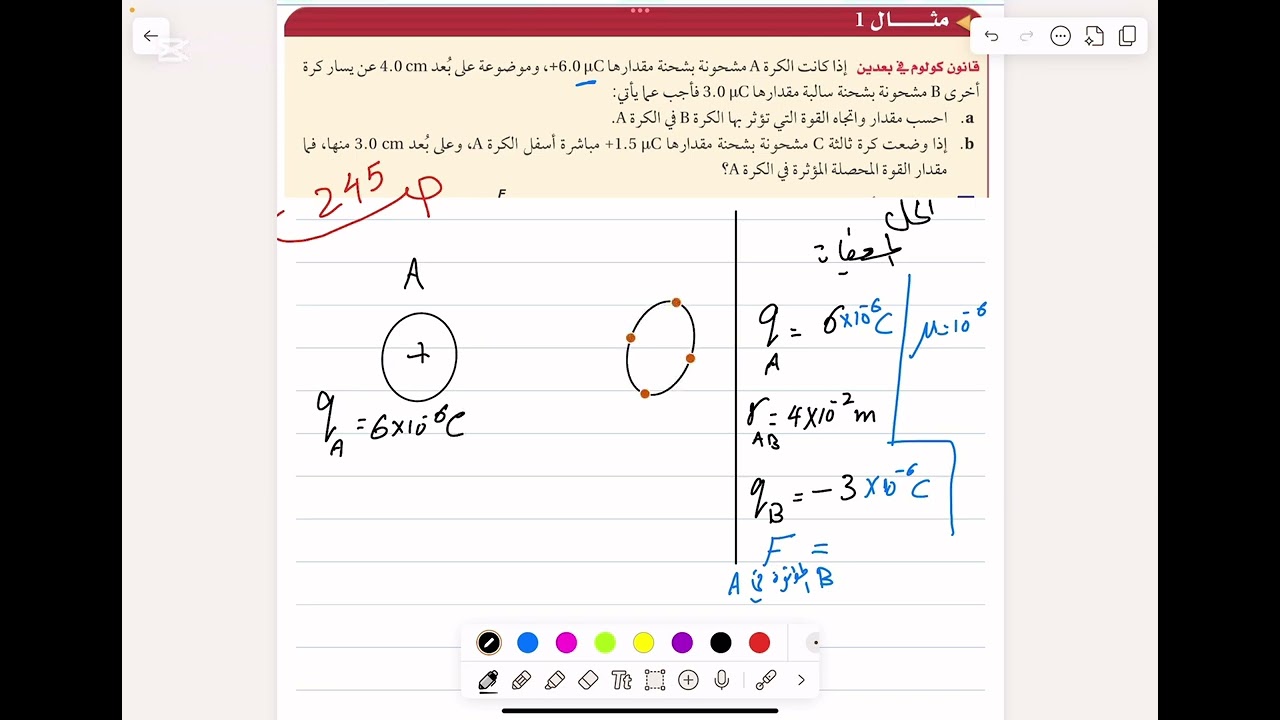 مثـــال 1
قانون كولوم في بعدين إذا كانت الكرة A مشحونة بشحنة مقدارها +6.0 μC، وموضوعة على بُعد 4.0 cm عن يسار كرة
أخرى B مشحونة بشحنة سالبة مقدارها 3.0 μC فأجب عما يأتي:
a. احسب مقدار واتجاه القوة التي تؤثر بها الكرة B في الكرة A.
b. إذا وضعت كرة ثالثة C مشحونة بشحنة مقدارها +1.5 μC مباشرة أسفل الكرة A، وعلى بُعد 3.0 cm منها، فما
مقدار القوة المحصلة المؤثرة في الكرة A؟
F
245
الحل
A
+
q_A = 6×10⁻⁶C
q_A = 6×10⁻⁶C
μ=10⁻⁶
r_AB = 4×10⁻²m
q_B = -3×10⁻⁶C
F =
B المؤثرة في A
Tt